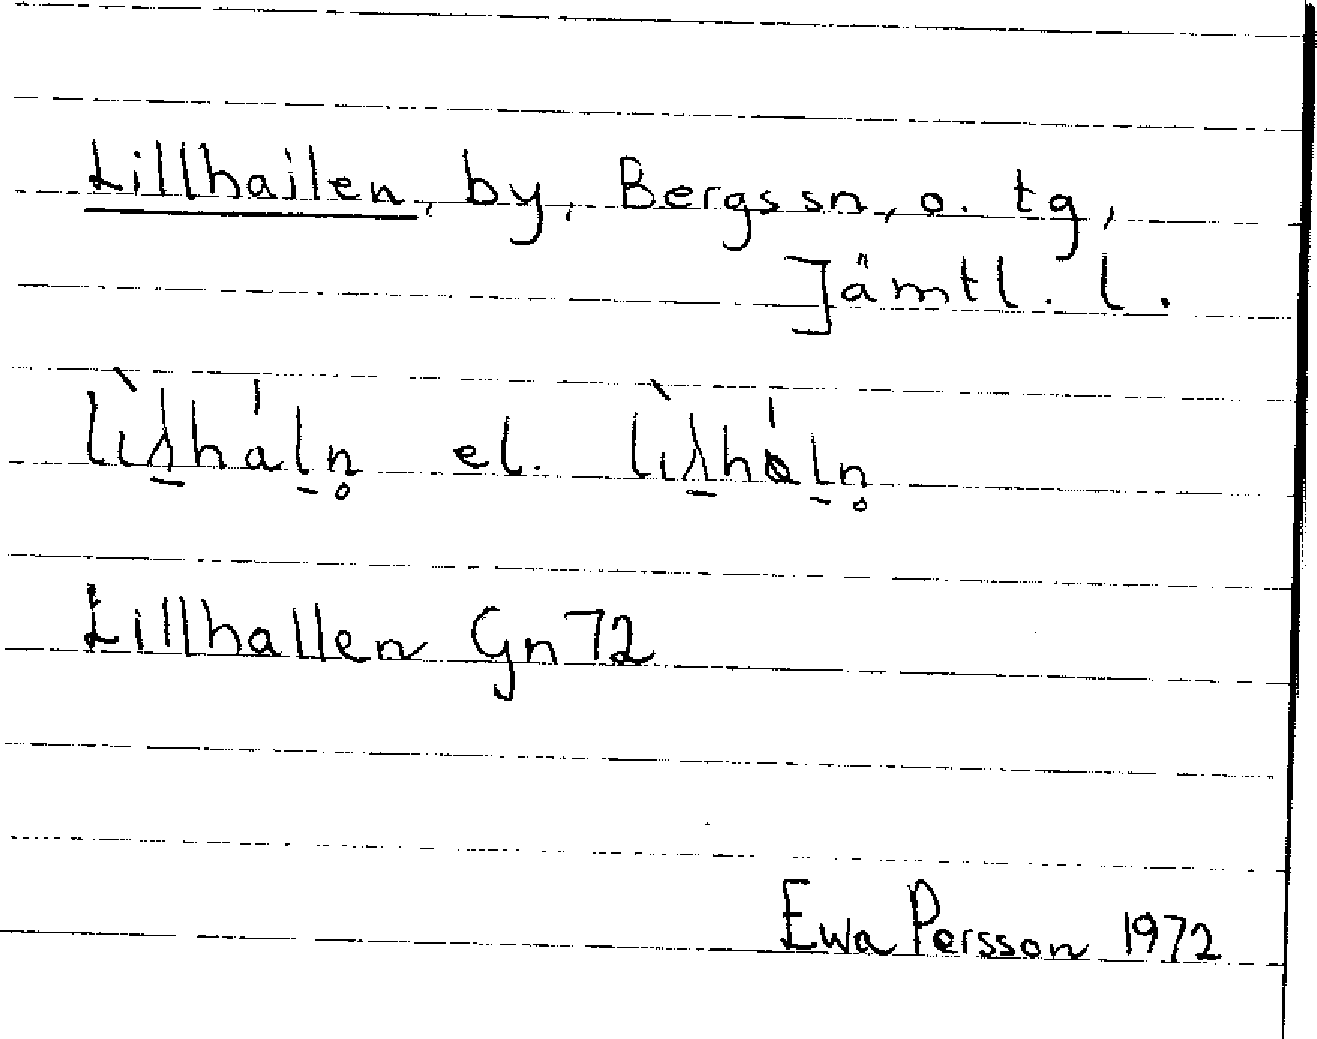 Lillhallen, by, Bergs sn, o. tg,
Jämtl. l.
lìλ̱háḻn̥ el. lìλ̱hɑ́ḻn̥
Lillhallen Gn 72
Ewa Persson 1972